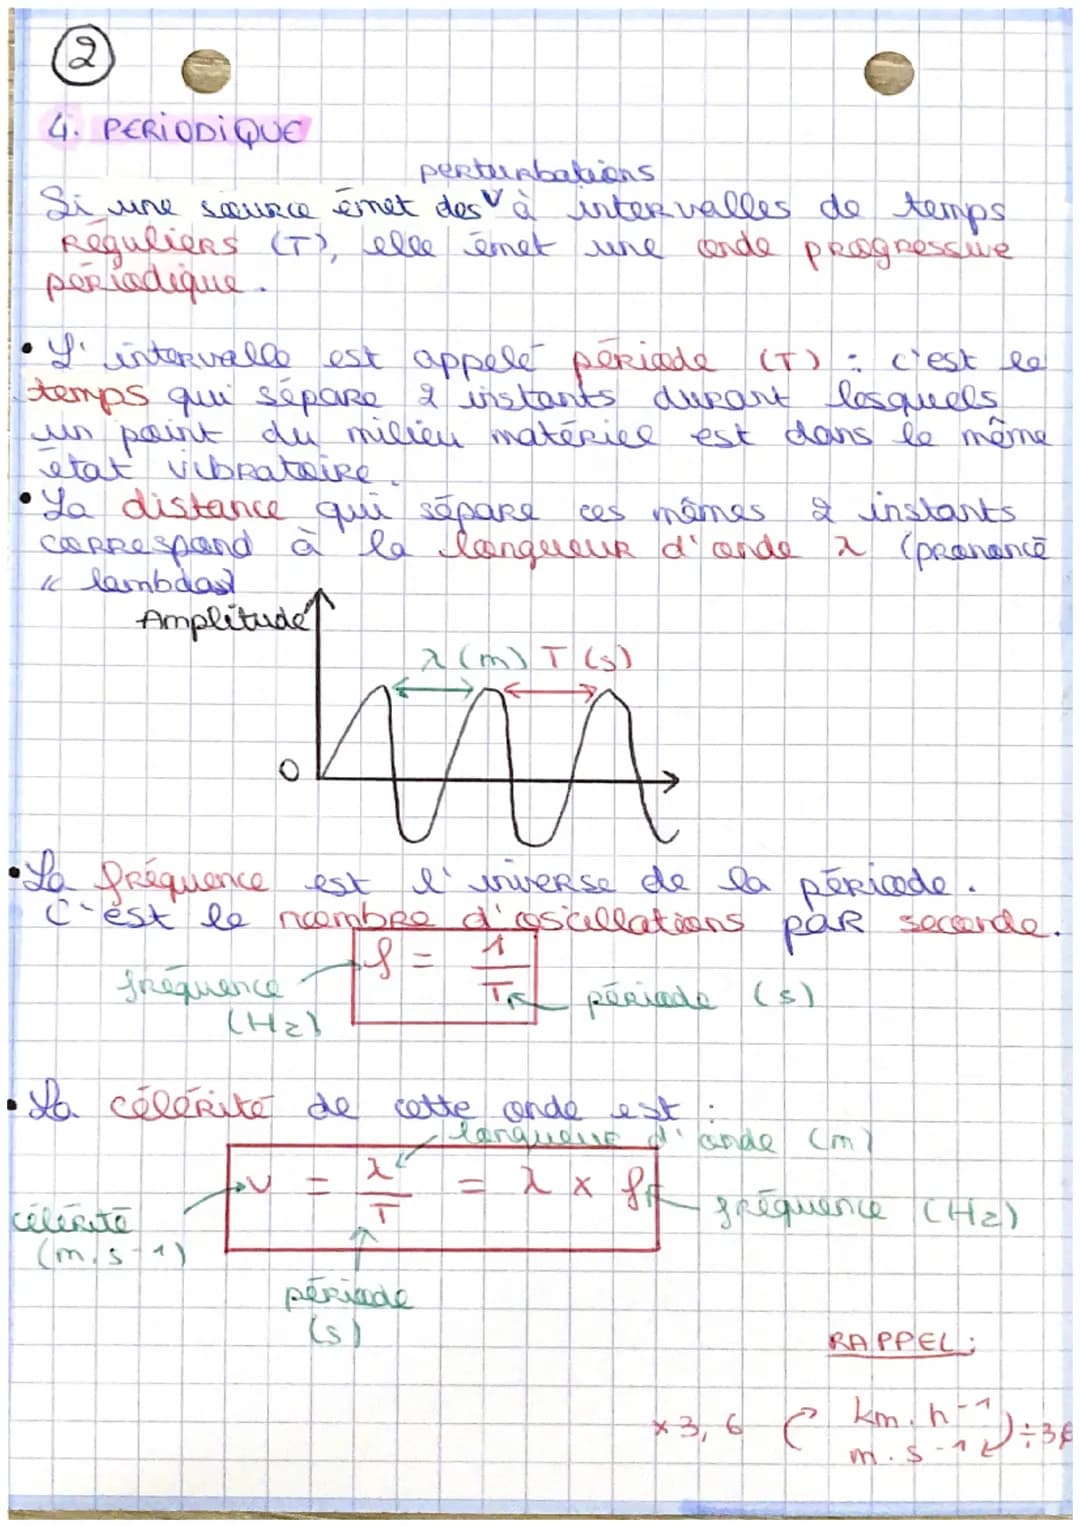 2
4. PERIODIQUE
perturbations
Si une source émet des V à intervalles de temps
Réguliers (T), elle émet une onde progressive
périodique.
• L'intervalle est appelé période (T) : c'est le
temps qui sépare 2 instants durant lesquels
un point du milieu matériel est dans le même
état vibratoire.
• La distance qui sépare ces mêmes 2 instants
correspond à la longueur d'onde λ (prononcé
"lambda")
Amplitude
λ (m) T (s)
0
• La fréquence est l'inverse de la période.
C'est le nombre d'oscillations par seconde.
f = 1/T
fréquence
(Hz)
période (s)
• La célérité de cette onde est :
longueur d'onde (m)
v = λ/T = λ x f
fréquence (Hz)
célérité
(m.s-1)
période
(s)
RAPPEL :
x3,6 km.h-1
m.s-1 ÷3,6